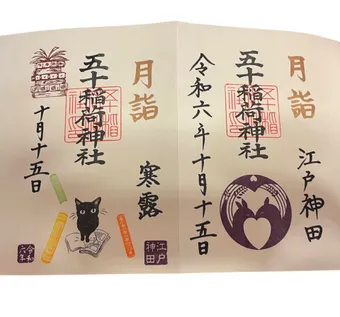 月詣
五十稲荷神社
令和六年十月十五日
江戸神田
月詣
五十稲荷神社
寒露
十月十五日
令和六年
江戸神田